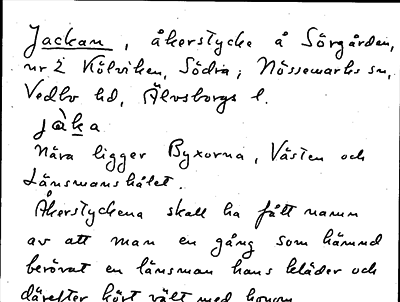 Jackan, åkerstycke å Sörgården,
nr 2 Kölviken, Södra; Nössemarks sn,
Vedbo hd, Älvsborgs l.
jàka
Nära ligger Byxorna, Västen och
Länsmanshålet.
Åkerstyckena skall ha fått namn
av att man en gång som hämnd
berövat en länsman hans kläder och
därefter kört vält med honom